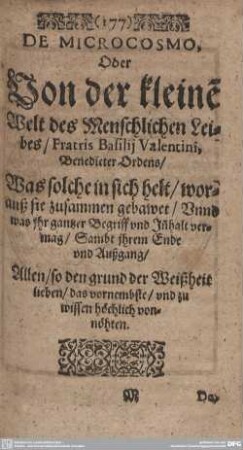 (177)
DE MICROCOSMO,
Oder
Von der kleinē
Welt des Menschlichen Lei-
bes / Fratris Basilij Valentini,
Benedicter Ordens /
Was solche in sich helt / wor-
auß sie zusammen gebawet / Vnnd
was Ihr gantzer Begriff vnd Jñhalt ver-
mag / Sambt ihrem Ende
vnd Außgang /
Allen / so den grund der Weißheit
lieben / das vornembste / vnd zu
wissen höchlich von-
nöhten.
M
Da-